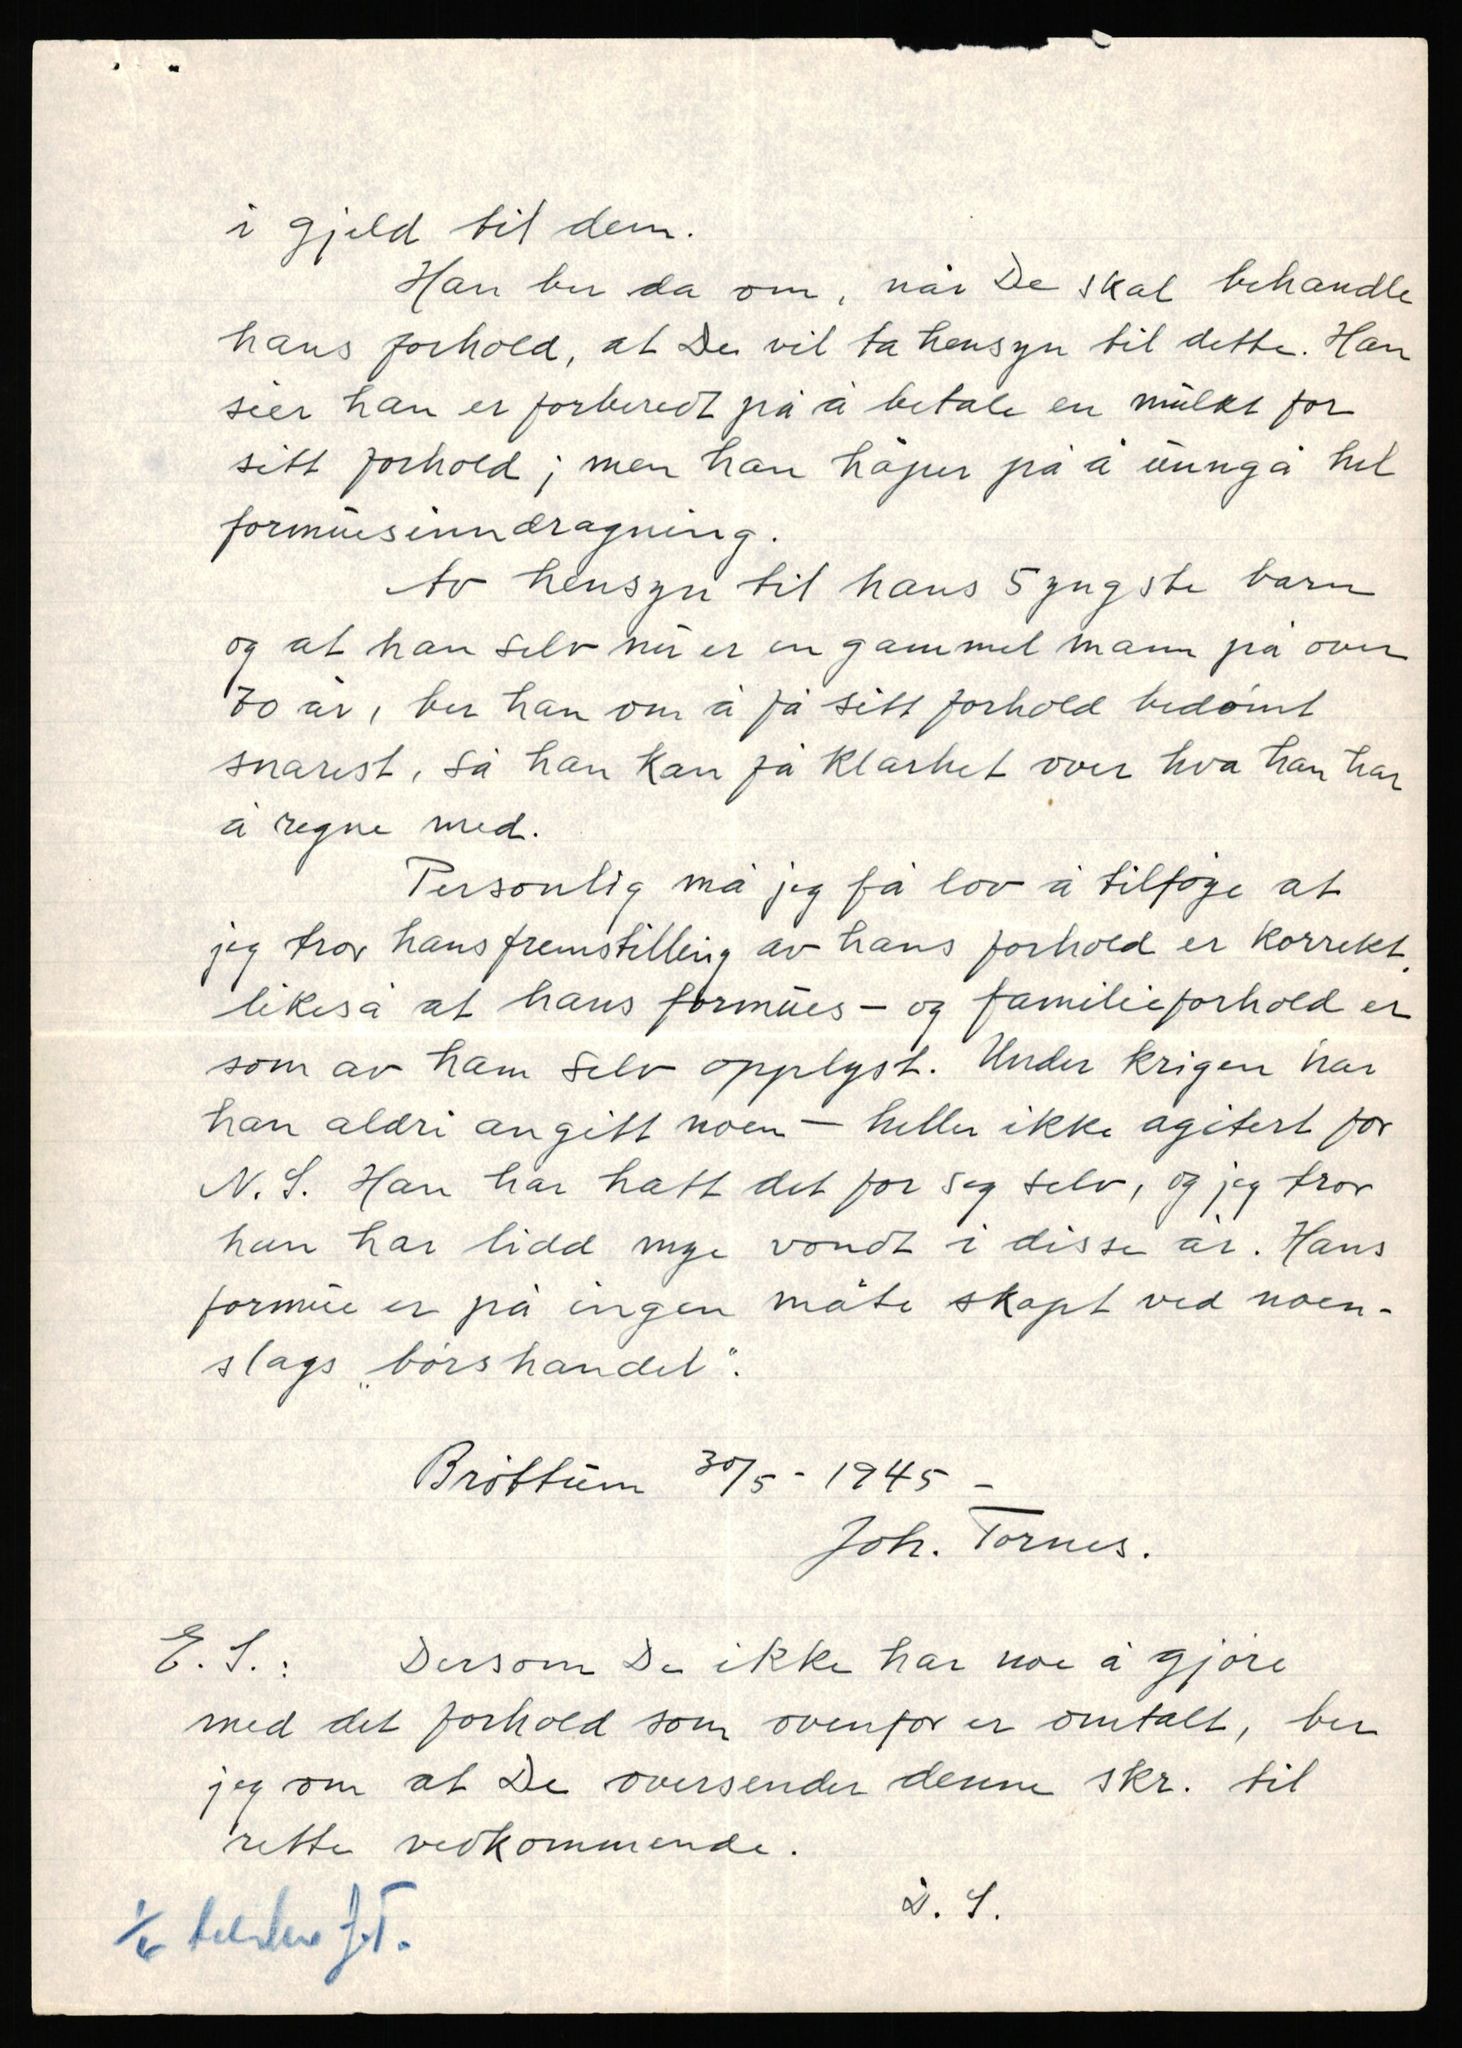 i gjeld til dem.
Han ber da om, når De skal behandle
hans forhold, at De vil ta hensyn til dette. Han
sier han er forberedt på å betale en mulkt for
sitt forhold; men han håper på å unngå hel
formuesinndragning.
Av hensyn til hans 5 yngste barn
og at han selv nu er en gammel mann på over
70 år, ber han om å få sitt forhold bedømt
snarest, så han kan få klarhet over hva han har
å regne med.
Personlig må jeg få lov å tilføye at
jeg tror hans fremstilling av hans forhold er korrekt,
likeså at hans formues- og familieforhold er
som av ham selv opplyst. Under krigen har
han aldri angitt noen — heller ikke agitert for
N.S. Han har hatt det for seg selv, og jeg tror
han har lidd mye vondt i disse år. Hans
formue er på ingen måte skapt ved noen-
slags „børshandel".
Brøttum 30/5 - 1945 -
Joh. Tornes.
E.S.: Dersom De ikke har noe å gjøre
med det forhold som ovenfor er omtalt, ber
jeg om at De oversender denne skr. til
rette vedkommende.
D.S.
1/6 J.T.